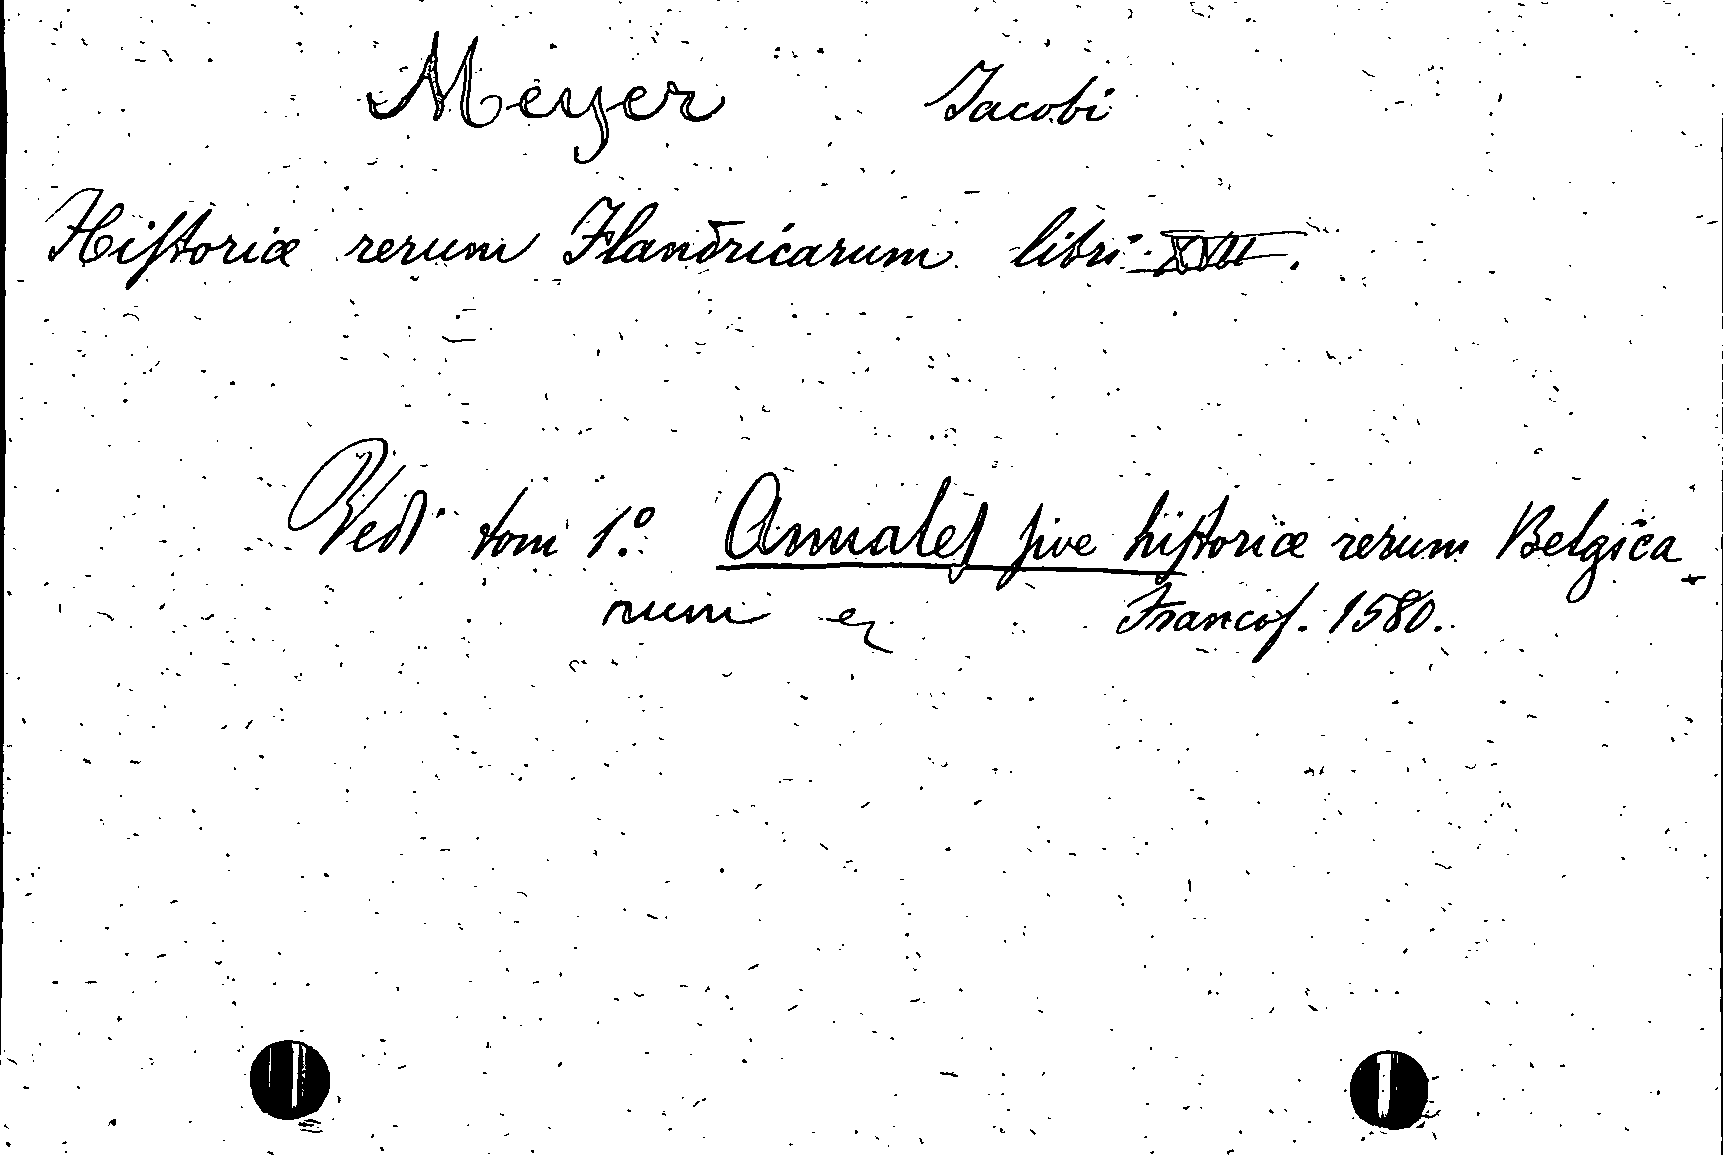 Meyer Jacobi
Hiſtoriæ rerum Flandricarum libri XVII.
Vedi tom 1.º Annaleſ ſive hiſtoriæ rerum Belgica-
rum Francof. 1580.